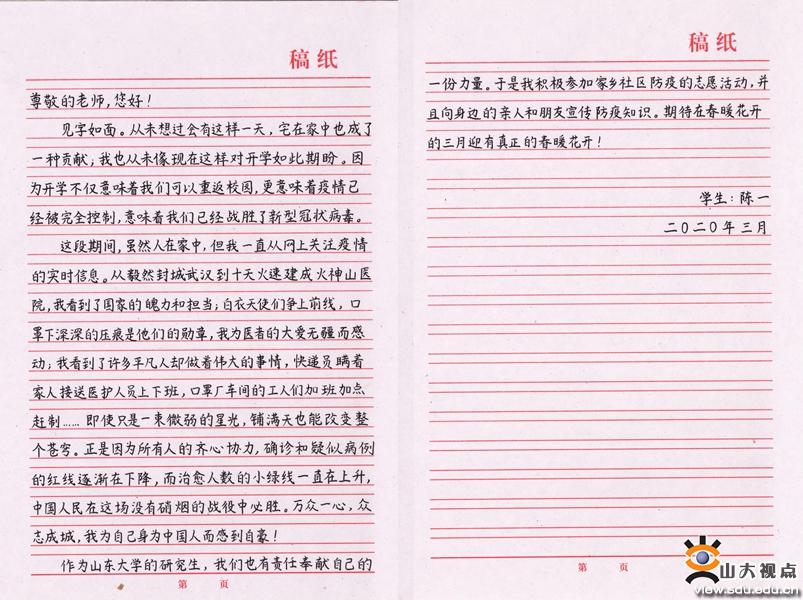 稿纸
尊敬的老师，您好！
见字如面。从未想过会有这样一天，宅在家中也成了
一种贡献；我也从未像现在这样对开学如此期盼。因
为开学不仅意味着我们可以重返校园，更意味着疫情已
经被完全控制，意味着我们已经战胜了新型冠状病毒。
这段期间，虽然人在家中，但我一直从网上关注疫情
的实时信息。从毅然封城武汉到十天火速建成火神山医
院，我看到了国家的魄力和担当；白衣天使们争上前线，口
罩下深深的压痕是他们的勋章，我为医者的大爱无疆而感
动；我看到了许多平凡人却做着伟大的事情，快递员瞒着
家人接送医护人员上下班，口罩厂车间的工人们加班加点
赶制……即使只是一束微弱的星光，铺满天也能改变整
个苍穹。正是因为所有人的齐心协力，确诊和疑似病例
的红线逐渐在下降，而治愈人数的小绿线一直在上升，
中国人民在这场没有硝烟的战役中必胜。万众一心，众
志成城，我为自己身为中国人而感到自豪！
作为山东大学的研究生，我们也有责任奉献自己的
第 页
稿纸
一份力量。于是我积极参加家乡社区防疫的志愿活动，并
且向身边的亲人和朋友宣传防疫知识。期待在春暖花开
的三月迎有真正的春暖花开！
学生：陈一
二〇二〇年三月
第 页
山大视点
view.sdu.edu.cn